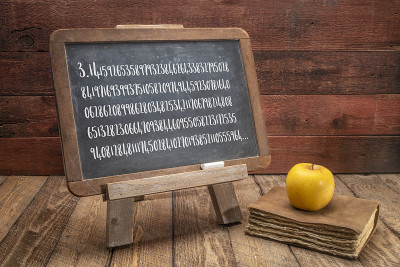 3.1415926535897932384626433832795028
8419716939937510582097494459230781640
6286208998628034825342117067982148086
5132823066470938446095505822317253594
081284811174502841027019385211055596 4...